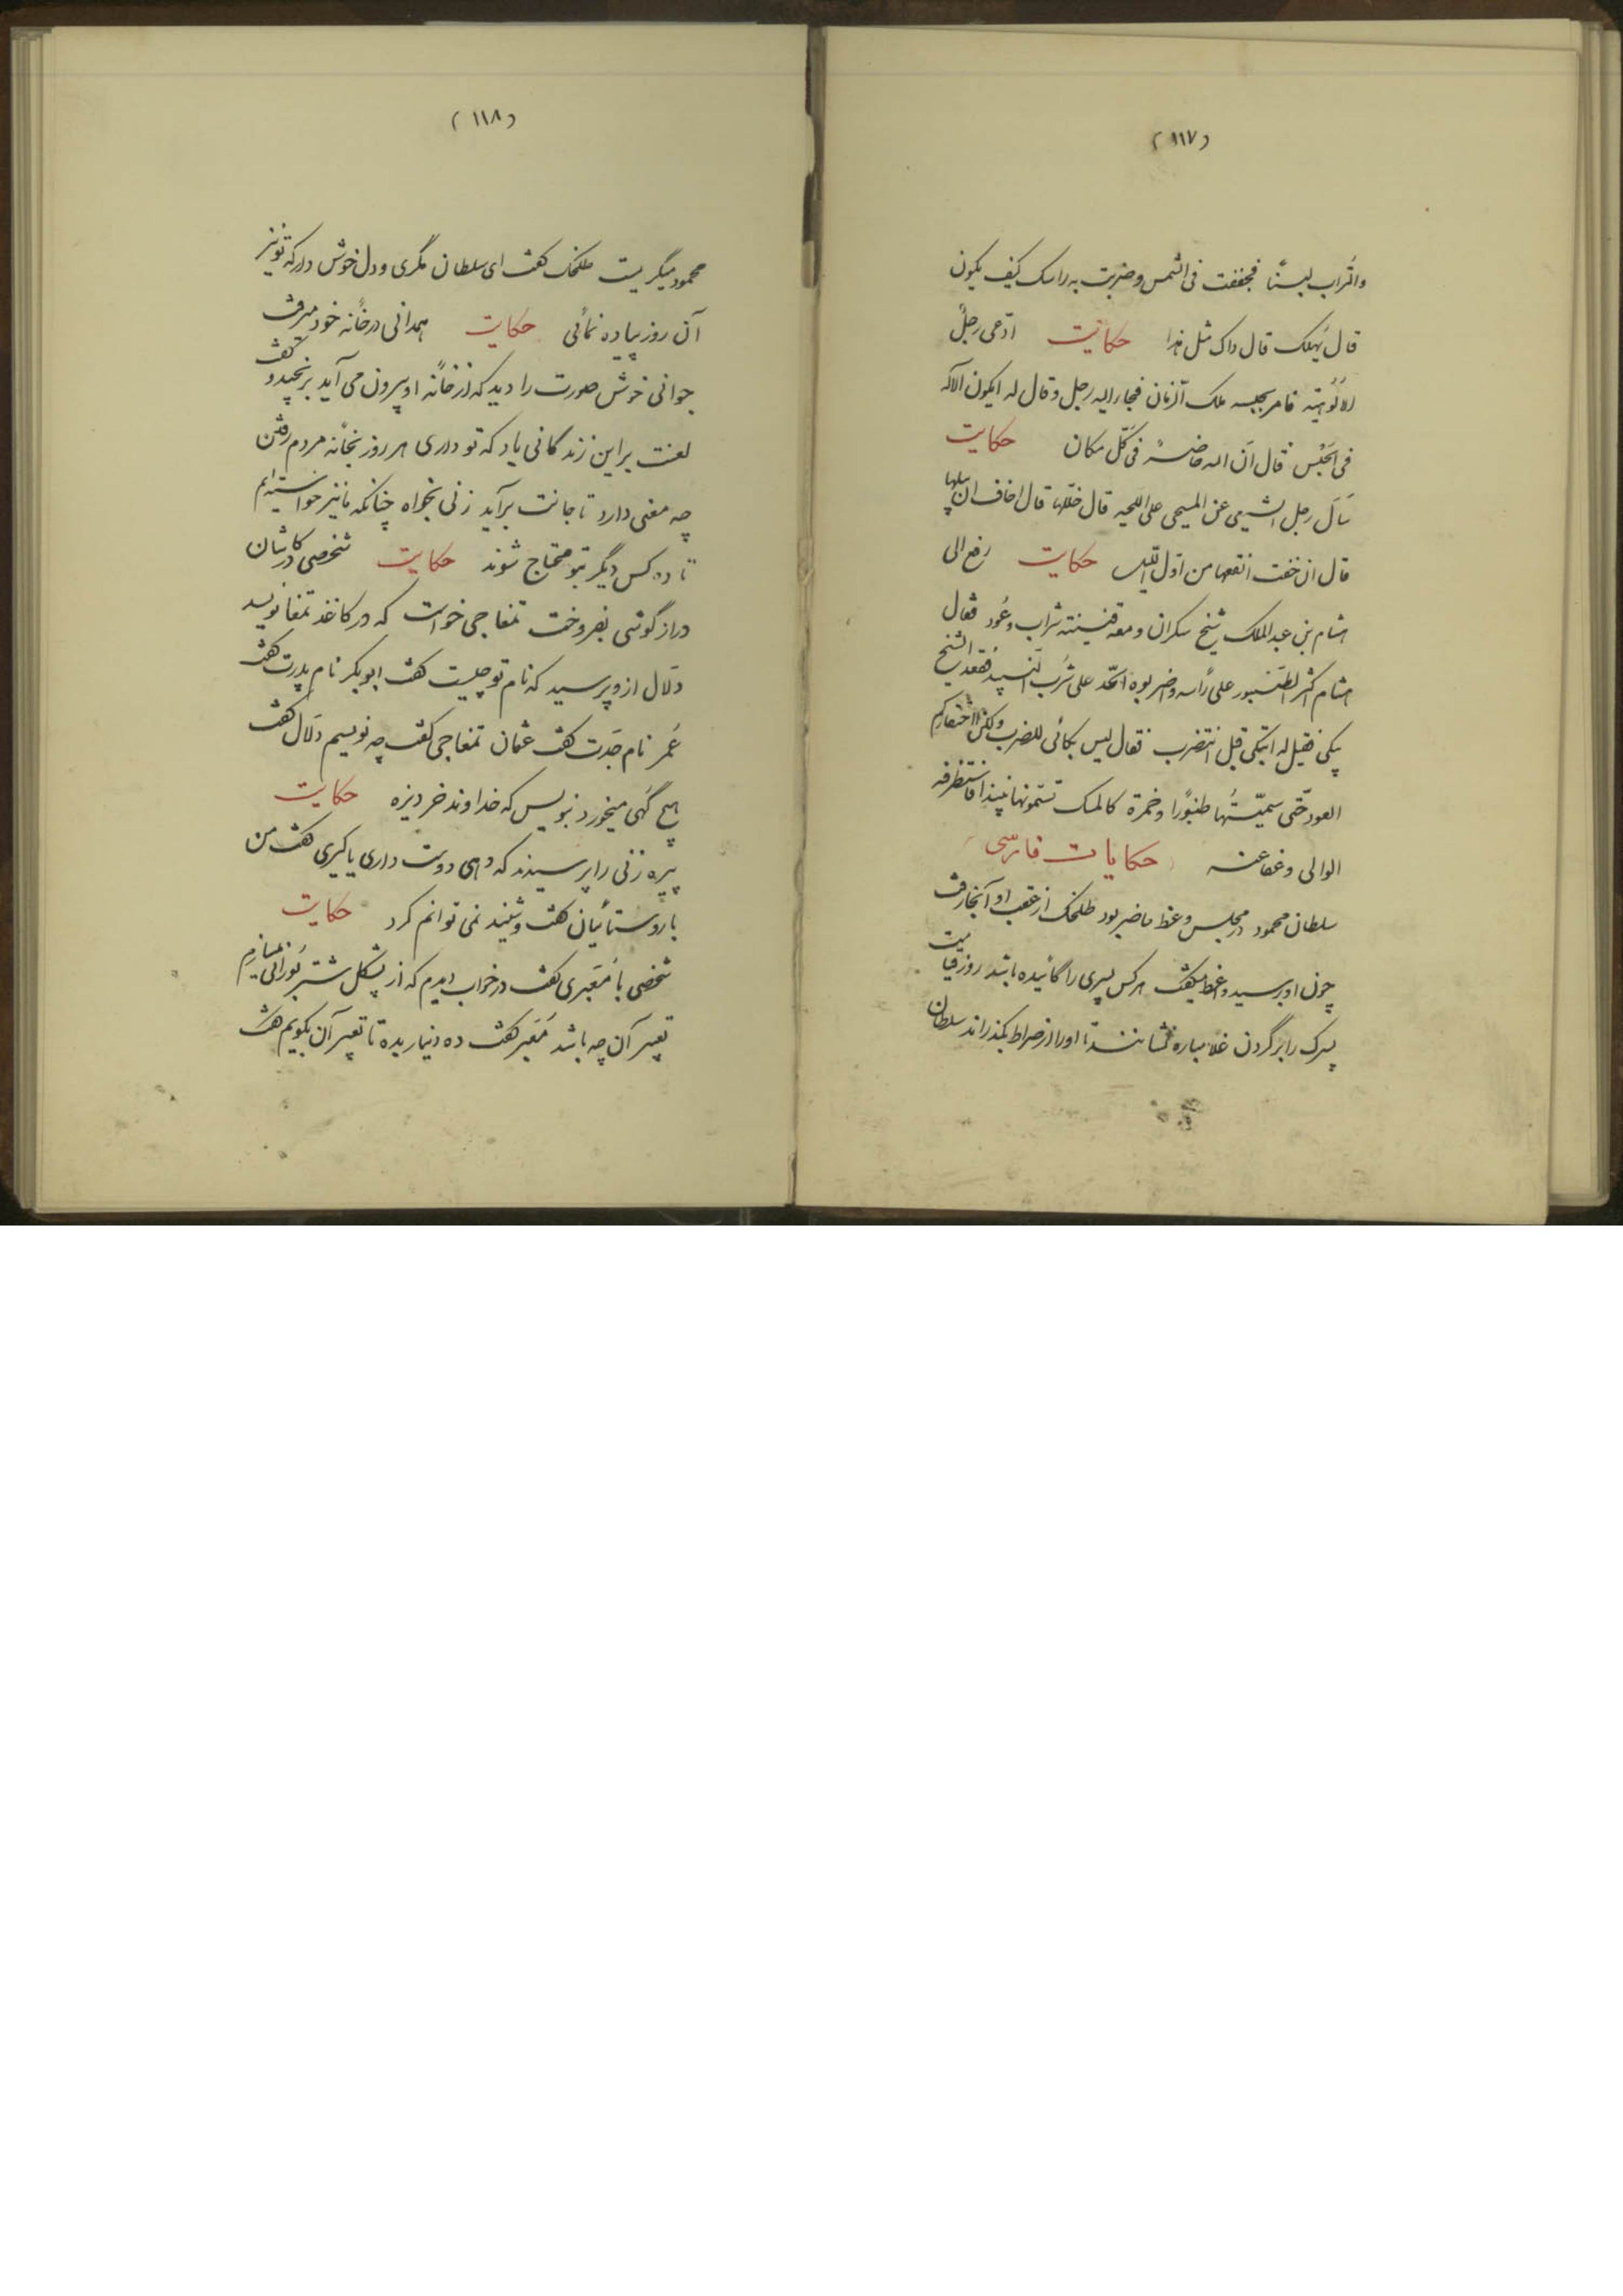 (۱۱۷)
والتراب لبنًا فجففت فی الشمس وضربت به راسک کیف یکون
قال یهلک قال ذاک مثل هذا حکایت ادّعی رجلٌ
الالُوهیّته فامر بحبسه ملک الزمان فجار الیه رجل وقال له ایکون الآله
فی الحَبْس قال اَن الله حاضرٌ فی کّل مکان حکایت
سَاَلَ رجل الشعبی عن المسیحی علی اللحیه قال خللها قال اخاف ان لا یبلها
قال ان خفت انقعها من اوّل اللّیل حکایت رفع الی
هشام بن عبد الملک شیخ سکران ومعه قنینته شراب وعُود فقال
هشام اکسر الطنبور علی رأسه واضربوه الحّد علی شرَب النبیذ فقعد الشیخ
یبکی فقیل له اتبکی قبل ان تضرب فقال لیس بکائی للضرب ولکن لاحتقارکم
العود حّتی سمیّتُها طنبورًا وخمرة کالمسک تسمّونها نبیذا فاستظرفه
الوالی وعفا عنه حکایات فارسی
سلطان محمود در مجلس وعظ حاضر بود طلخک از عقب او آنجا رفت
چون او برسید واعظ میگفت هر کس پسری را گائیده باشد روز قیامت
پسرک را بر گردن غلامباره نشانند تا او را از صراط بگذراند سلطان
(۱۱۸)
محمود میگریست طلخک گفت ای سلطان مگری و دل خوش دار که تو نیز
آن روز پیاده نمائی حکایت همدانی در خانه خود میرفت
جوانی خوش صورت را دید که از خانه او بیرون می آید برنجید و گفت
لعنت بر این زندگانی باد که تو داری هر روز بخانه مردم رفتن
چه معنی دارد تا جانت برآید زنی بخواه چنانکه ما نیز خواسته ایم
تا ده کس دیگر بتو محتاج شوند حکایت شخصی کاشان
دراز گوشی بفروخت تمغاجی خواست که در کاغذ تمغا نویسد
دلال ازو پرسید که نام تو چیست گفت ابوبکر نام پدرت گفت
عُمر نام جَدت گفت عثمان تمغاجی گفت چه نویسم دلال گفت
هیچ گُهی میخورد بنویس که خداوند خر دیزه حکایت
پیره زنی را پرسیدند که دهی دوست داری یا کیری گفت من
با روستائیان گفت و شنید نمی توانم کرد حکایت
شخصی با مُعَبری گفت در خواب دیدم که از پشکل شتر بُورانی میسازم
تعبیر آن چه باشد مُعَبر گفت ده دینار بده تا تعبیر آن بگویم گفت